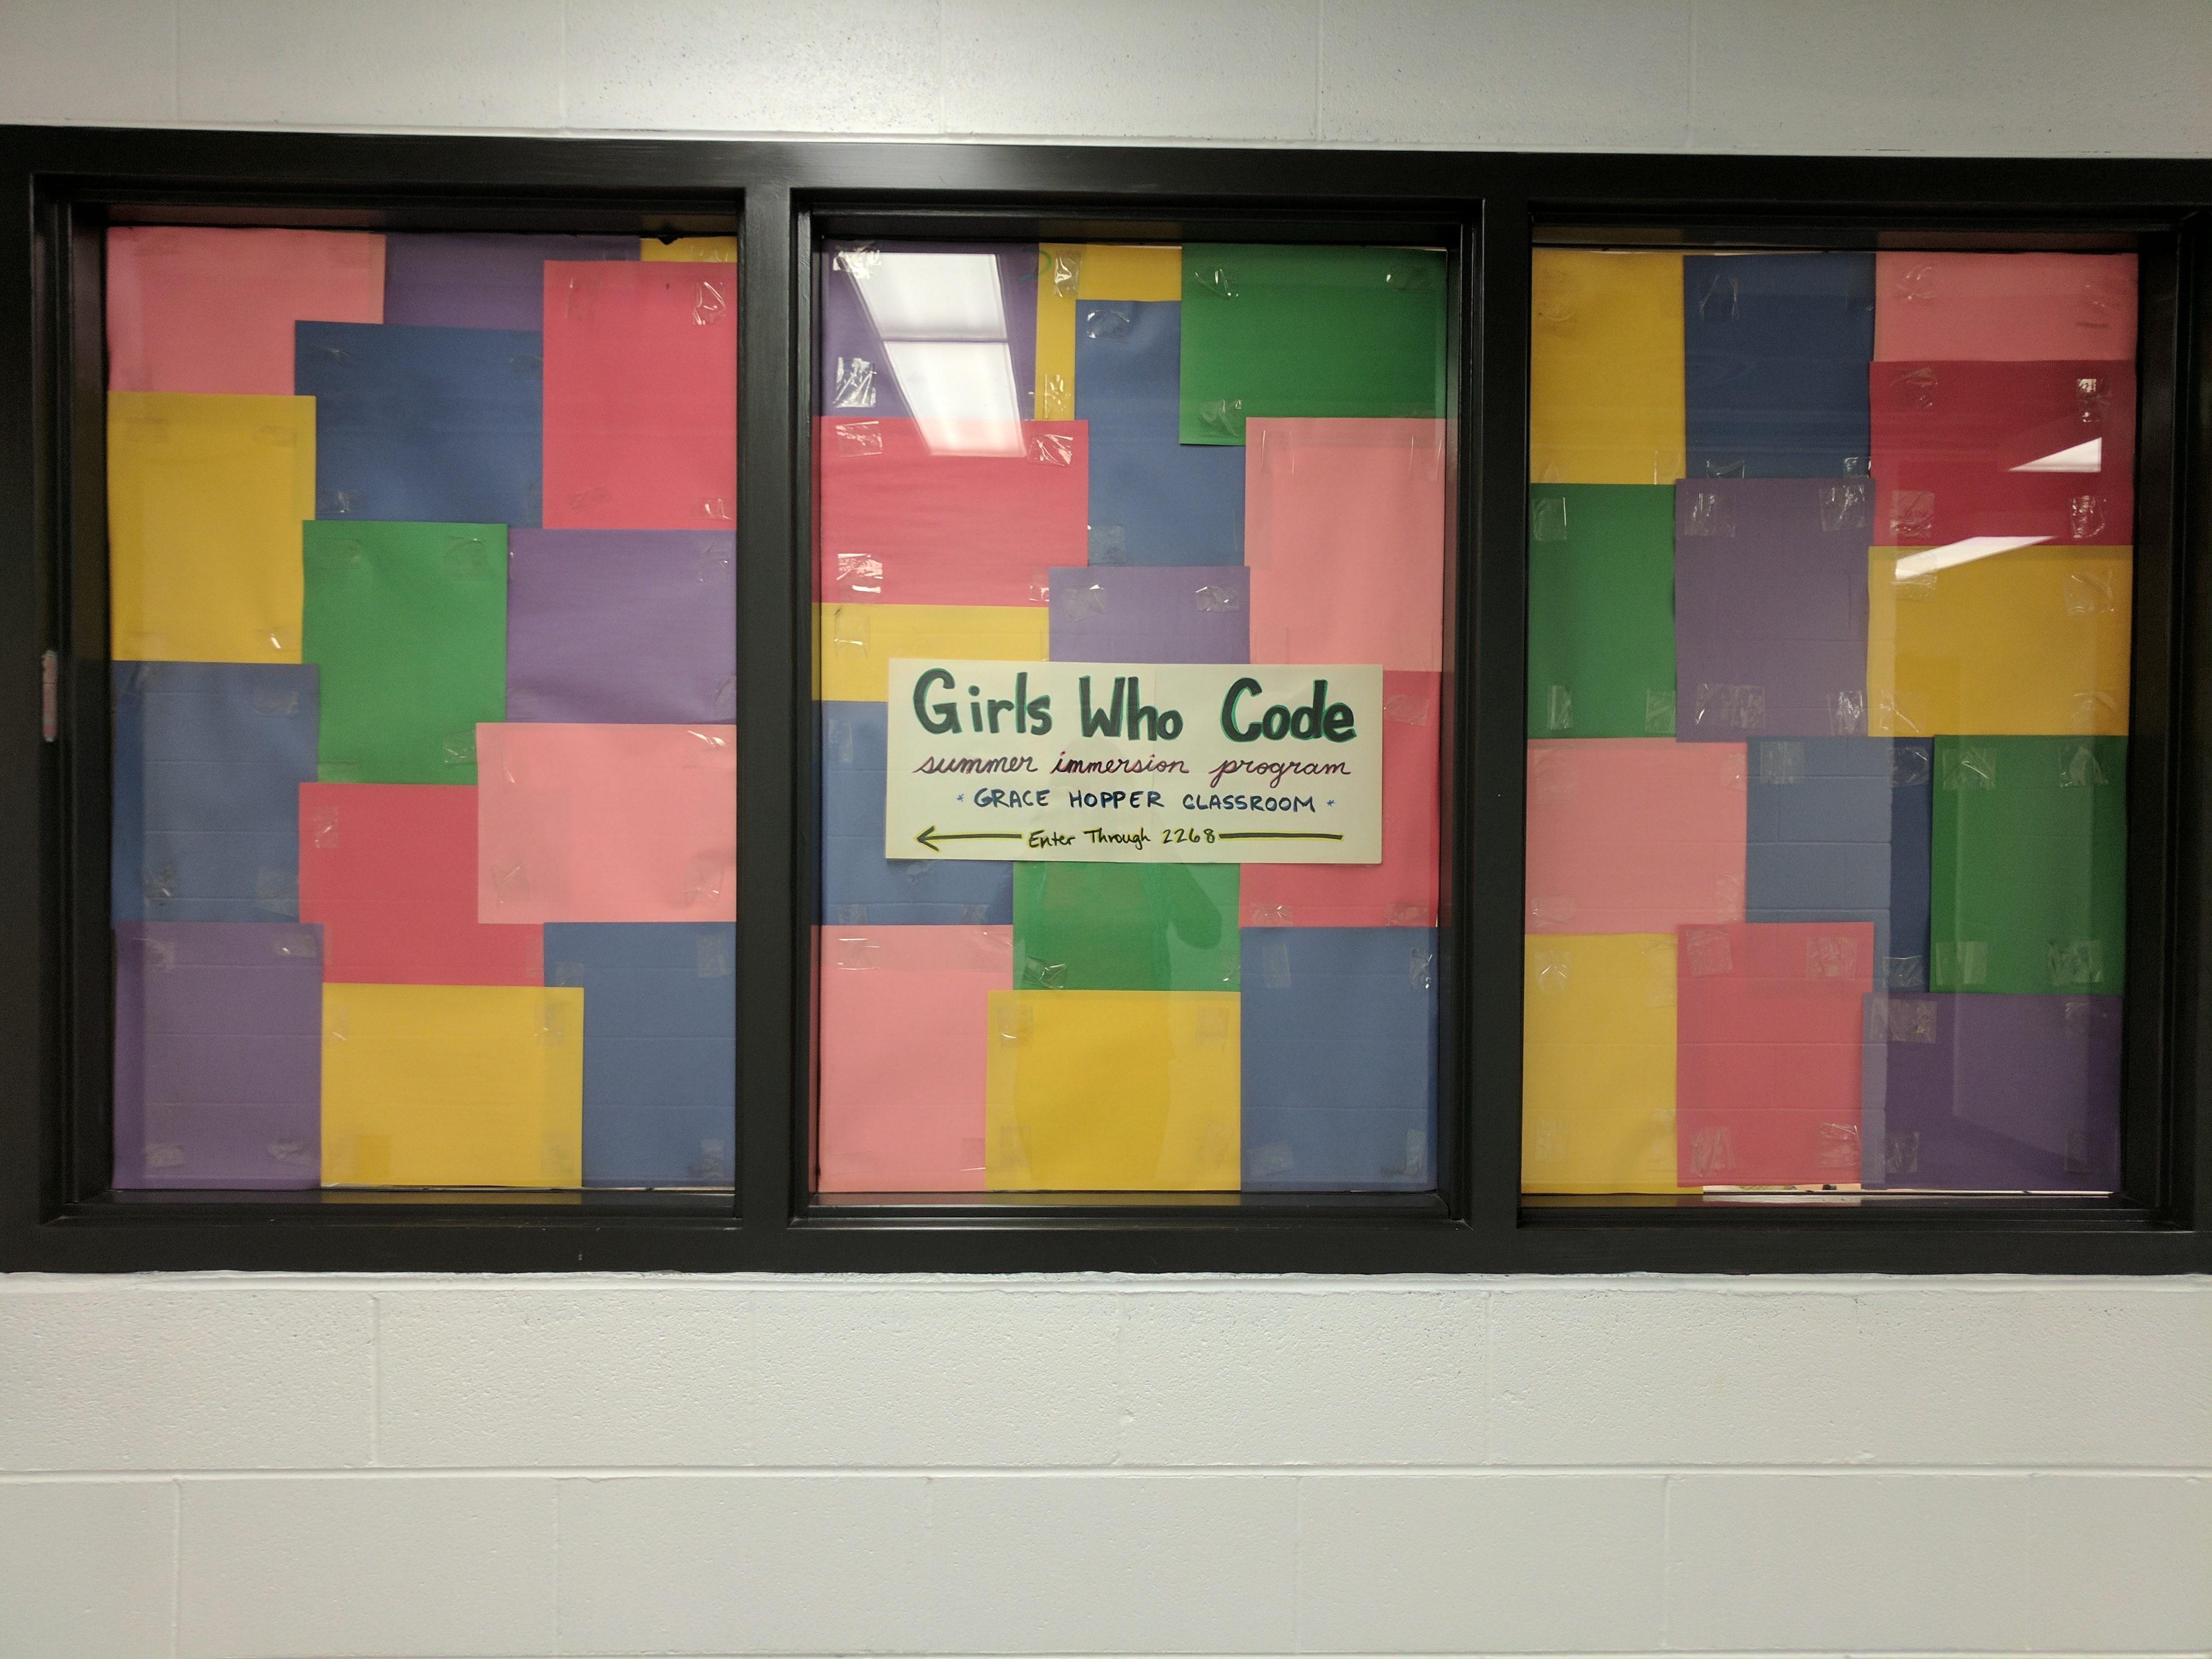 Girls Who Code
summer immersion program
* GRACE HOPPER CLASSROOM *
Enter Through 2268